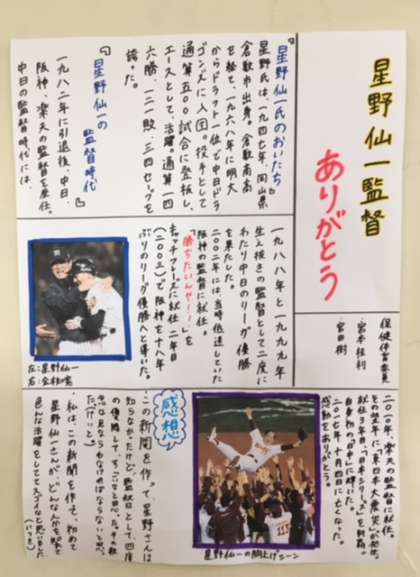 星野仙一監督
ありがとう
保健体育委員
・宮本桂利
・宮田樹
『星野仙一氏のおいたち』
星野氏は一九四七年、岡山県
倉敷市出身。倉敷商高
を経て、一九六八年に明大
からドラフト一位で中日ドラ
ゴンズに入団。投手として
通算五〇〇試合に登板し、
エースとして、活躍。通算一四
六勝、一二一敗、三四セーブを
誇った。
『星野仙一の
監督時代』
一九八二年に引退後、中日、
阪神、楽天の監督を歴任。
中日の監督時代には、
一九八八年と一九九九年、
生え抜きの監督として二度に
わたり中日のリーグ優勝
を果たした。
二〇〇二年には、当時低迷していた
阪神の監督に就任。
「勝ちたいんや!!」を
キャッチフレーズに就任二年目
(二〇〇三)で阪神を十八年
ぶりのリーグ優勝へと導いた。
左:星野仙一
右:金本知憲
二〇一一年、楽天の監督に就任。
その年に、東日本大震災が発生。
就任3年目、「日本シリーズ」を制覇。
自身初の「日本一」に輝いた。
感動をありがとう。
星野仙一の胴上げシーン
感想
この新聞を作って、星野さんは
知らなかったけど、監督として、四度
の優勝して、すごいなと思った。
(けいと)
私は、この新聞を作って、初めて
色んな活躍をしててスゴイなと思いました。
(いつき)